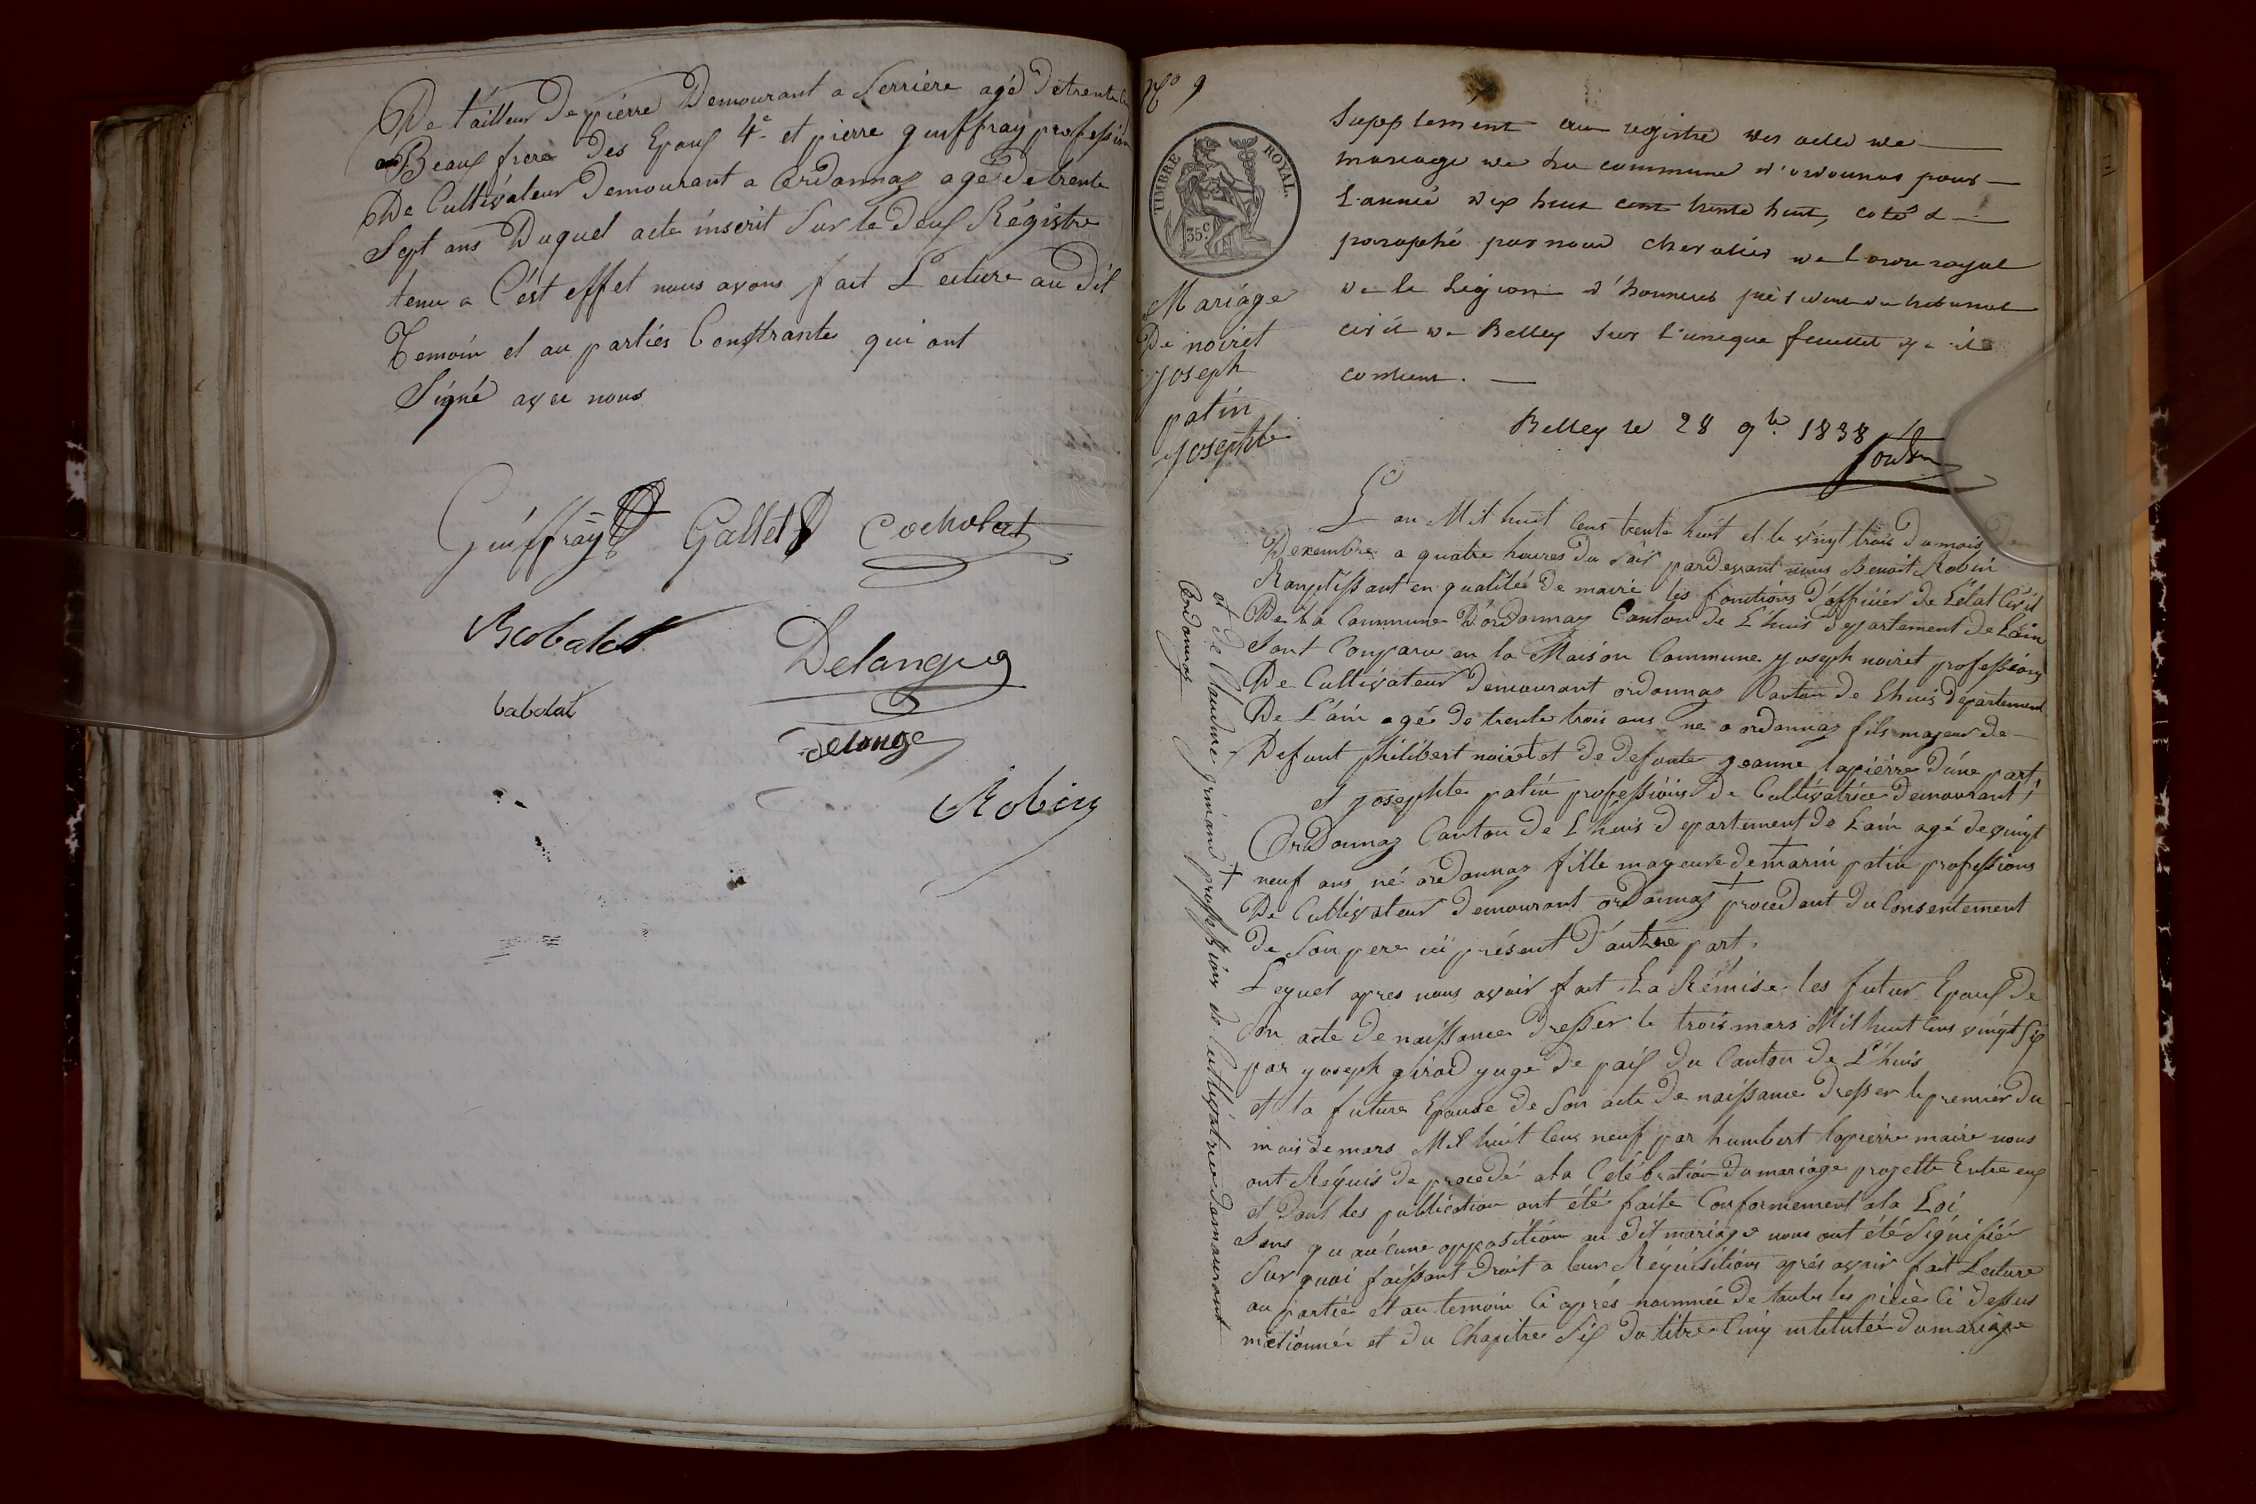 De tailleur De pierre Demourant a Serriere agé De trente
Beaux frere des Epoux 4e et pierre guiffray profession
De Cultivateur Demourant a Ordonnaz agé De trente
Sept ans Duquel acte inscrit Sur le Deux Régistre
tenu a C'est effet nous avons fait Lecture au Dit
Temoin et au parties Contrante qui ont
Signé avec nous
Guiffray Gallet Cocholat
Babolat Delangeo
babolat delonge
Robin
No 9
TIMBRE ROYAL.
35c.
Mariage
De noiret
joseph
patin
josephte
Supplement au registre des actes de
mariage de la commune d'ordonnas pour
L'année dix huit cent trente huit, coté &
paraphé par nous chevalier de l'ordre royal
de la Légion d'honneur président du tribunal
civil de Belley sur l'unique feuillet qu'il
contient.
Belley le 28 9bre 1838
L'an Mil huit Cens trente huit et le vingt trois du mois De
Dexembre a quatre heures Du Soir pardevant nous Benoit Robin
Ranplissant en qualiteé De maire les fonctions D'officier de L'état Civil
De La Commune D'Ordonnaz Canton De L'huis Departement De Lain
Sont Comparu en la Maison Commune joseph noiret professions
De Cultivateur Demourant ordonnaz Canton De Lhuis Département
De L'ain agé De trente trois ans ne a ordonnaz fils majeur De
Defunt philibert noiret et De defunte jeanne lapierre D'une part,
et josephte patin professions De Cultivatrice Demourant
Ordonnaz Canton De L'huis Departement De Lain agé De vingt
neuf ans né ordonnaz fille mageure de marin patin professions
De Cultivateur Demourant ordonnaz + procedant Du Consentement
De Son pere ici présent D'autre part.
Lequel apres nous avoir fait La Rémise les futur Epoux De
Son acte De naissance Dresser le trois mars Mil huit Cens vingt Six
par joseph girod juge De paix Du Canton De L'huis
et la future Epouse De Son acte De naissance Dresser le premier Du
mois De mars Mil huit Cens neuf par humbert lapierre maire nous
ont Réquis De procedé a la Celébration Du mariage projetté Entre eux
et Dont les publication ont été faite Conformement a la Loi
Sans qu'aucune opposition au Dit mariage nous ont été Signifiér
Sur quoi faissant Droit a leur Réquisitions aprés avoir fait Lecture
au partie et au temoin Ci aprés nommée De toutes les pièce Ci Dessus
mietionnée et Du Chapitre Six Du titre Cinq intituleé Du mariage
+ et De Claudine grinand professions De Cultivatrice Demourant
Ordonnaz